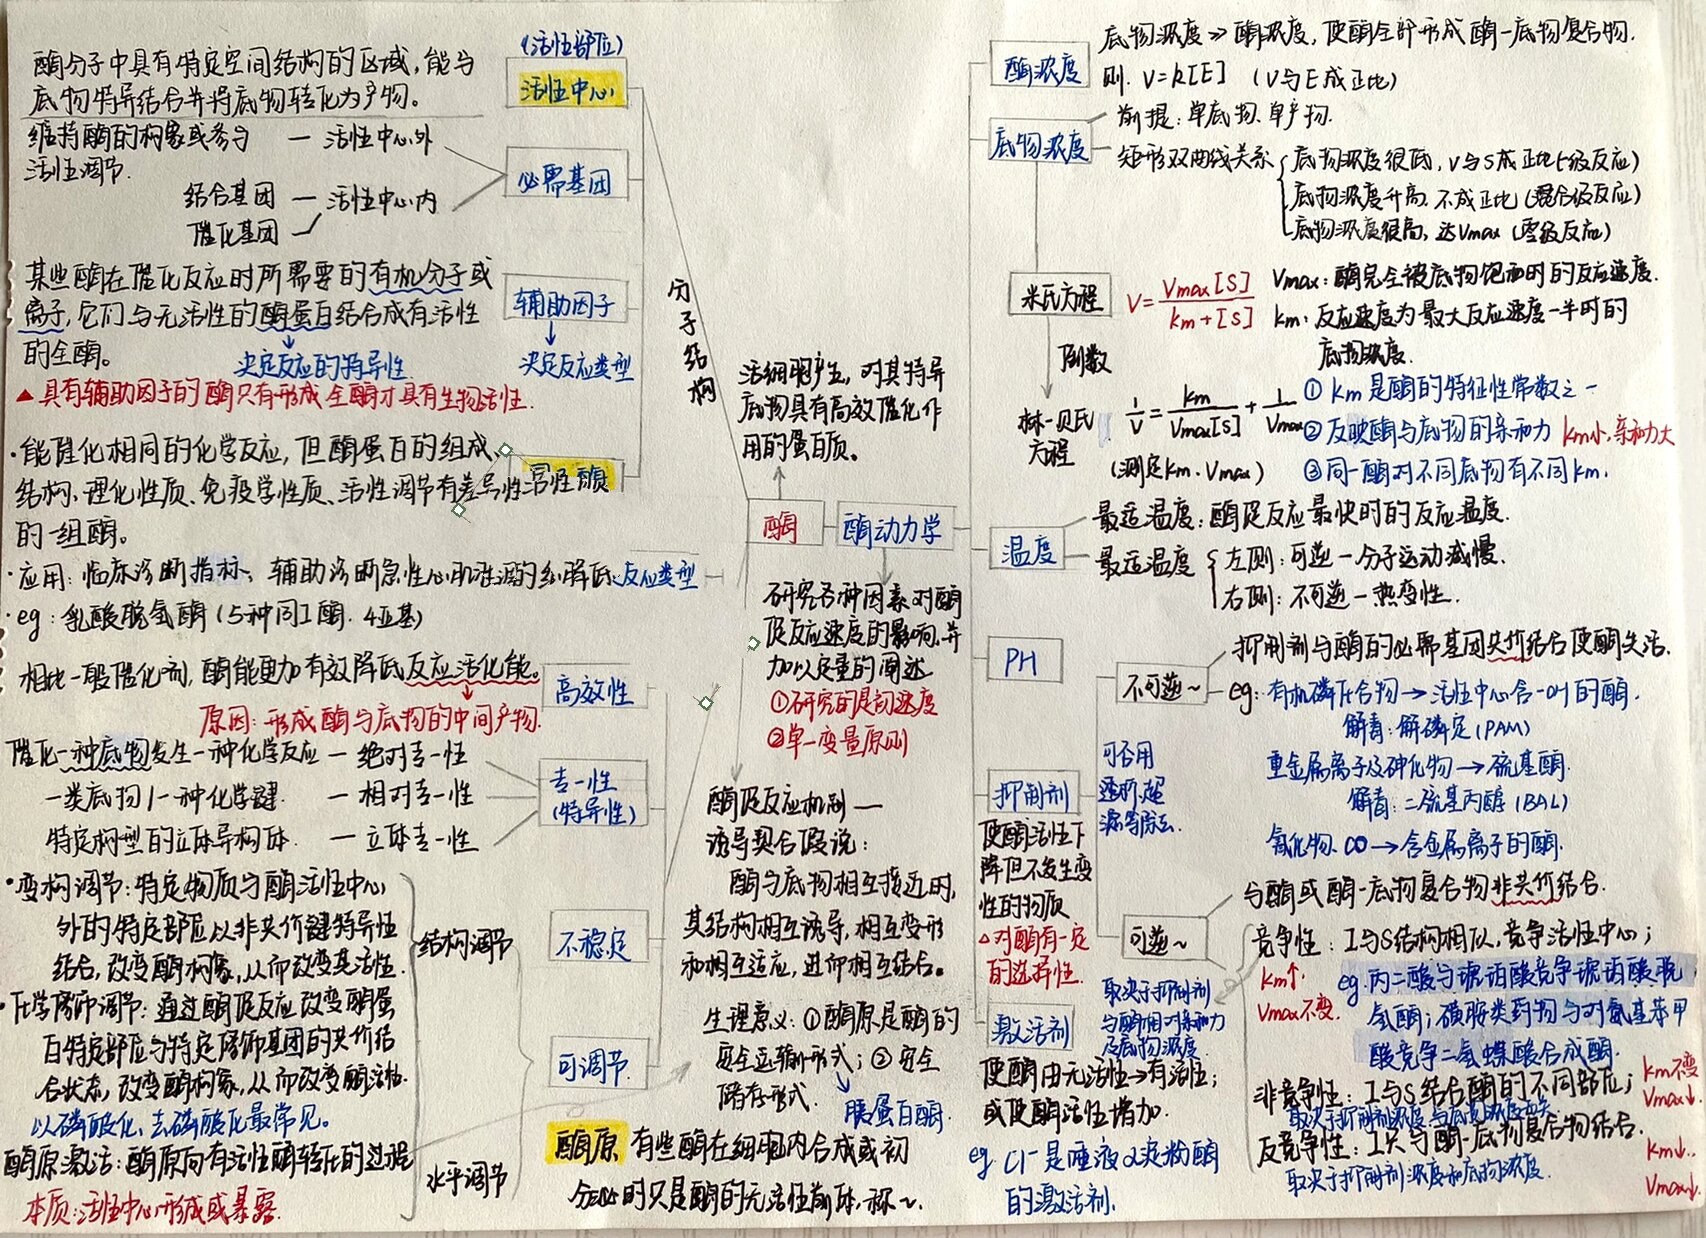 (活性部位)
活性中心
酶分子中具有特定空间结构的区域，能与
底物特异结合并将底物转化为产物。
必需基团
维持酶的构象或参与 — 活性中心外
活性调节.
结合基团 — 活性中心内
催化基团
辅助因子
某些酶在催化反应时所需要的有机分子或
离子，它们与无活性的酶蛋白结合成有活性
的全酶。
决定反应的特异性
决定反应类型
▲具有辅助因子的酶只有形成全酶才具有生物活性.
分子结构
同工酶
·能催化相同的化学反应，但酶蛋白的组成、
结构、理化性质、免疫学性质、活性调节有差异性
的一组酶。
·应用：临床诊断指标，辅助诊断急性心肌
·eg：乳酸脱氢酶（5种同工酶. 4亚基）
反应类型
高效性
相比一般催化剂，酶能更加有效降低反应活化能。
原因：形成酶与底物的中间产物.
专一性
(特异性)
催化一种底物发生一种化学反应 — 绝对专一性
一类底物/一种化学键. — 相对专一性
特定构型的立体异构体. — 立体专一性
不稳定
可调节
结构调节
·变构调节：特定物质与酶活性中心
外的特定部位以非共价键特异性
结合，改变酶构象，从而改变其活性.
·化学修饰调节：通过酶促反应改变酶蛋
白特定部位与特定修饰基团的共价结
合状态，改变酶构象，从而改变酶活性.
以磷酸化、去磷酸化最常见。
酶原激活：酶原向有活性酶转化的过程
本质：活性中心形成或暴露.
水平调节
活细胞产生，对其特异
底物具有高效催化作
用的蛋白质。
酶
酶动力学
研究各种因素对酶
促反应速度的影响，并
加以定量的阐述
①研究的是初速度
②单一变量原则
酶促反应机制 —
诱导契合假说：
酶与底物相互接近时，
其结构相互诱导，相互变形
和相互适应，进而相互结合。
生理意义：①酶原是酶的
安全运输形式；②安全
储存形式.
胰蛋白酶.
酶原 有些酶在细胞内合成或初
分泌时只是酶的无活性前体，称～.
酶浓度
底物浓度≫酶浓度，使酶全部形成酶—底物复合物.
则. V=k[E] (V与E成正比)
底物浓度
前提：单底物、单产物.
矩形双曲线关系
底物浓度很低，V与S成正比(一级反应)
底物浓度升高，不成正比(混合级反应)
底物浓度很高，达Vmax (零级反应)
米氏方程
V = Vmax[S] / km+[S]
Vmax：酶完全被底物饱和时的反应速度.
km：反应速度为最大反应速度一半时的
底物浓度.
倒数
林-贝氏
方程
(测定km、Vmax)
1/V = km/Vmax[S] + 1/Vmax
① km是酶的特征性常数之一
② 反映酶与底物的亲和力 km小，亲和力大
③ 同一酶对不同底物有不同km.
温度
最适温度：酶促反应最快时的反应温度.
最适温度
左侧：可逆—分子运动减慢.
右侧：不可逆—热变性.
PH
抑制剂
使酶活性下
降但不发生变
性的物质
△对酶有一定
的选择性.
可否用
透析、超
滤等除去.
不可逆～
抑制剂与酶的必需基团共价结合使酶失活.
eg：有机磷化合物→活性中心含-OH的酶.
解毒：解磷定(PAM)
重金属离子及砷化物→巯基酶.
解毒：二巯基丙醇(BAL)
氰化物、CO→含金属离子的酶.
可逆～
与酶或酶-底物复合物非共价结合.
竞争性：I与S结构相似，竞争活性中心；
km↑
Vmax不变.
取决于抑制剂
与酶相对亲和力
及底物浓度.
eg.丙二酸与琥珀酸竞争琥珀酸脱
氢酶；磺胺类药物与对氨基苯甲
酸竞争二氢蝶酸合成酶.
非竞争性：I与S结合酶的不同部位；
km不变
Vmax↓.
反竞争性：I只与酶-底物复合物结合.
取决于抑制剂浓度和底物浓度.
km↓.
Vmax↓.
激活剂
使酶由无活性→有活性；
或使酶活性增加.
eg. Cl⁻是唾液α淀粉酶
的激活剂.